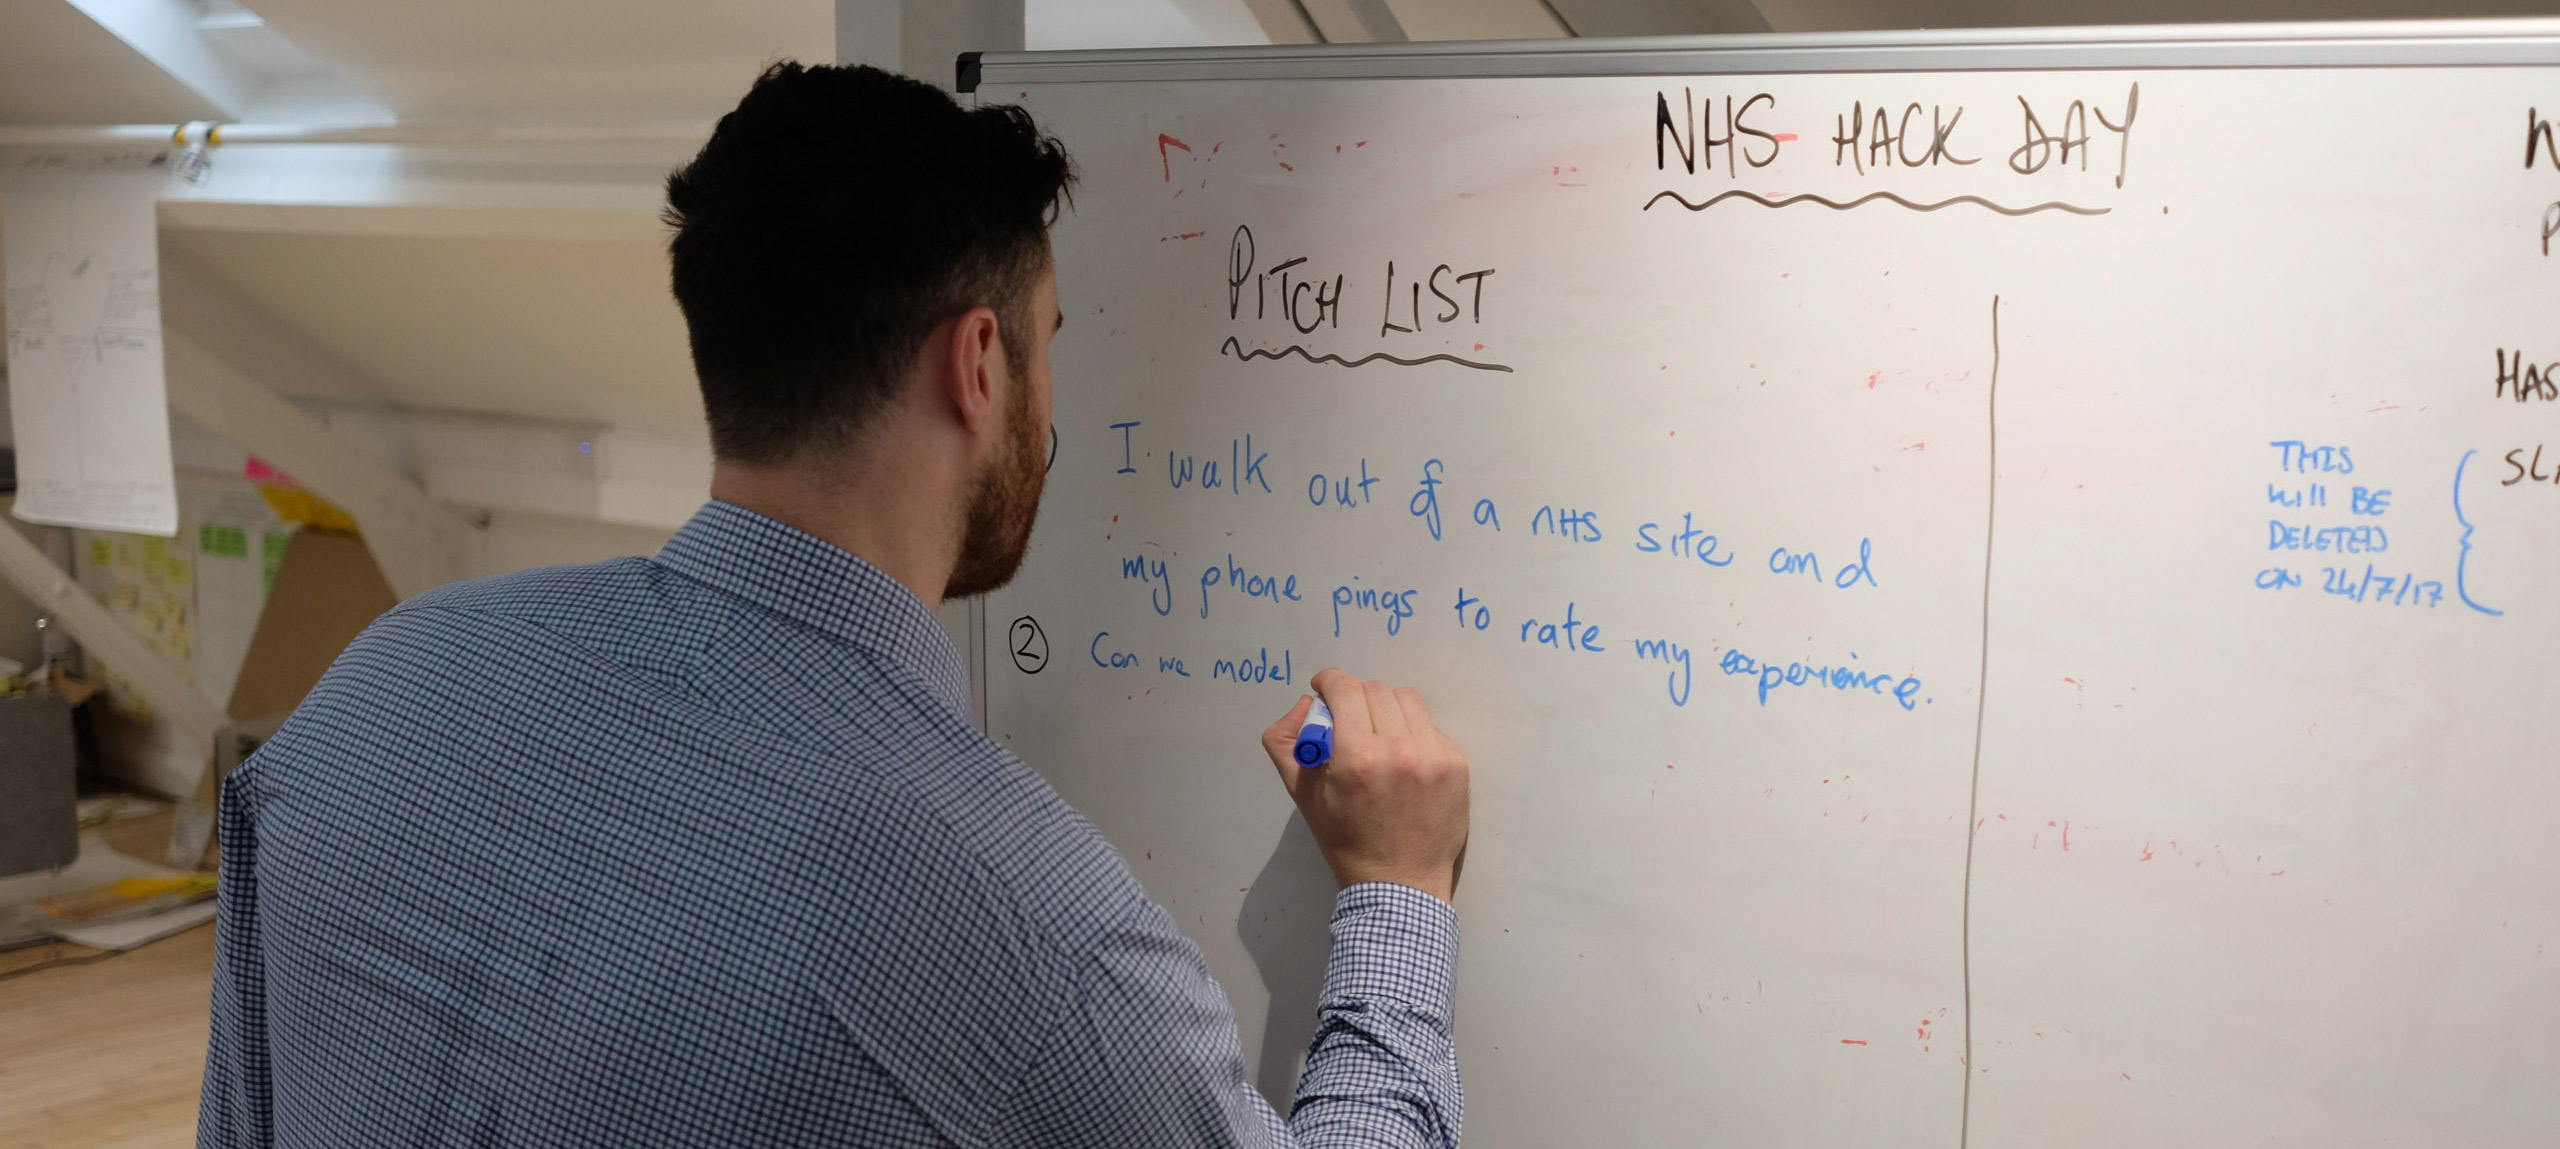 NHS HACK DAY
PITCH LIST
I walk out of a NHS site and
my phone pings to rate my experience.
2 Can we model
THIS
will BE
DELETED
ON 24/7/17
HAS
SLA